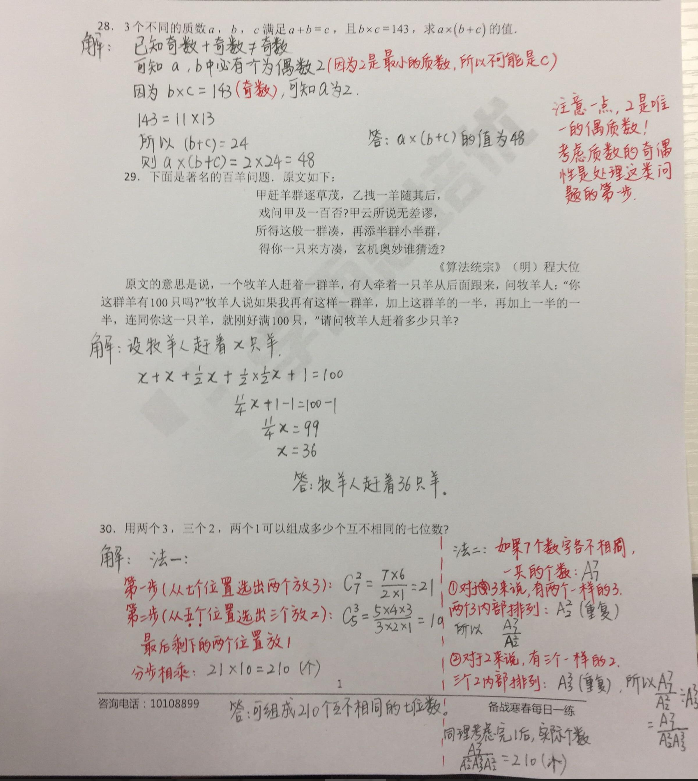 28. 3个不同的质数a，b，c满足a+b=c，且b×c=143，求a×(b+c)的值.
解：已知奇数+奇数≠奇数
可知a,b中必有个为偶数2(因为2是最小的质数,所以不可能是c)
因为b×c=143(奇数),可知a为2.
143=11×13
所以(b+c)=24
则a×(b+c)=2×24=48
答：a×(b+c)的值为48
注意一点，2是唯
一的偶质数！
考虑质数的奇偶
性是处理这类问
题的第一步.
29. 下面是著名的百羊问题．原文如下：
甲赶羊群逐草茂，乙拽一羊随其后，
戏问甲及一百否?甲云所说无差谬，
所得这般一群凑，再添半群小半群，
得你一只来方凑，玄机奥妙谁猜透?
《算法统宗》（明）程大位
原文的意思是说，一个牧羊人赶着一群羊，有人牵着一只羊从后面跟来，问牧羊人：“你
这群羊有100只吗?”牧羊人说如果我再有这样一群羊，加上这群羊的一半，再加上一半的一
半，连同你这一只羊，就刚好满100只，”请问牧羊人赶着多少只羊?
解：设牧羊人赶着x只羊.
x+x+½x+½×½x+1=100
11/4x+1-1=100-1
11/4x=99
x=36
答：牧羊人赶着36只羊.
30. 用两个3，三个2，两个1可以组成多少个互不相同的七位数?
解：法一：
第一步(从七个位置选出两个放3)：C₇²=7×6/2×1=21
第二步(从五个位置选出三个放2)：C₅³=5×4×3/3×2×1=10
最后剩下的两个位置放1
分步相乘：21×10=210(个)
法二：如果7个数字各不相同，
一共的个数：A₇⁷
①对于3来说,有两个一样的3.
两个3内部排列：A₂²(重复)
所以 A₇⁷/A₂²
②对于2来说，有三个一样的2.
三个2内部排列：A₃³(重复)，所以A₇⁷/A₂²÷A₃³
=A₇⁷/A₂²A₃³
同理考虑完1后，实际个数
A₇⁷/A₂²A₃³A₂²=210(个)
1
咨询电话：10108899
备战寒春每日一练
答：可组成210个互不相同的七位数！